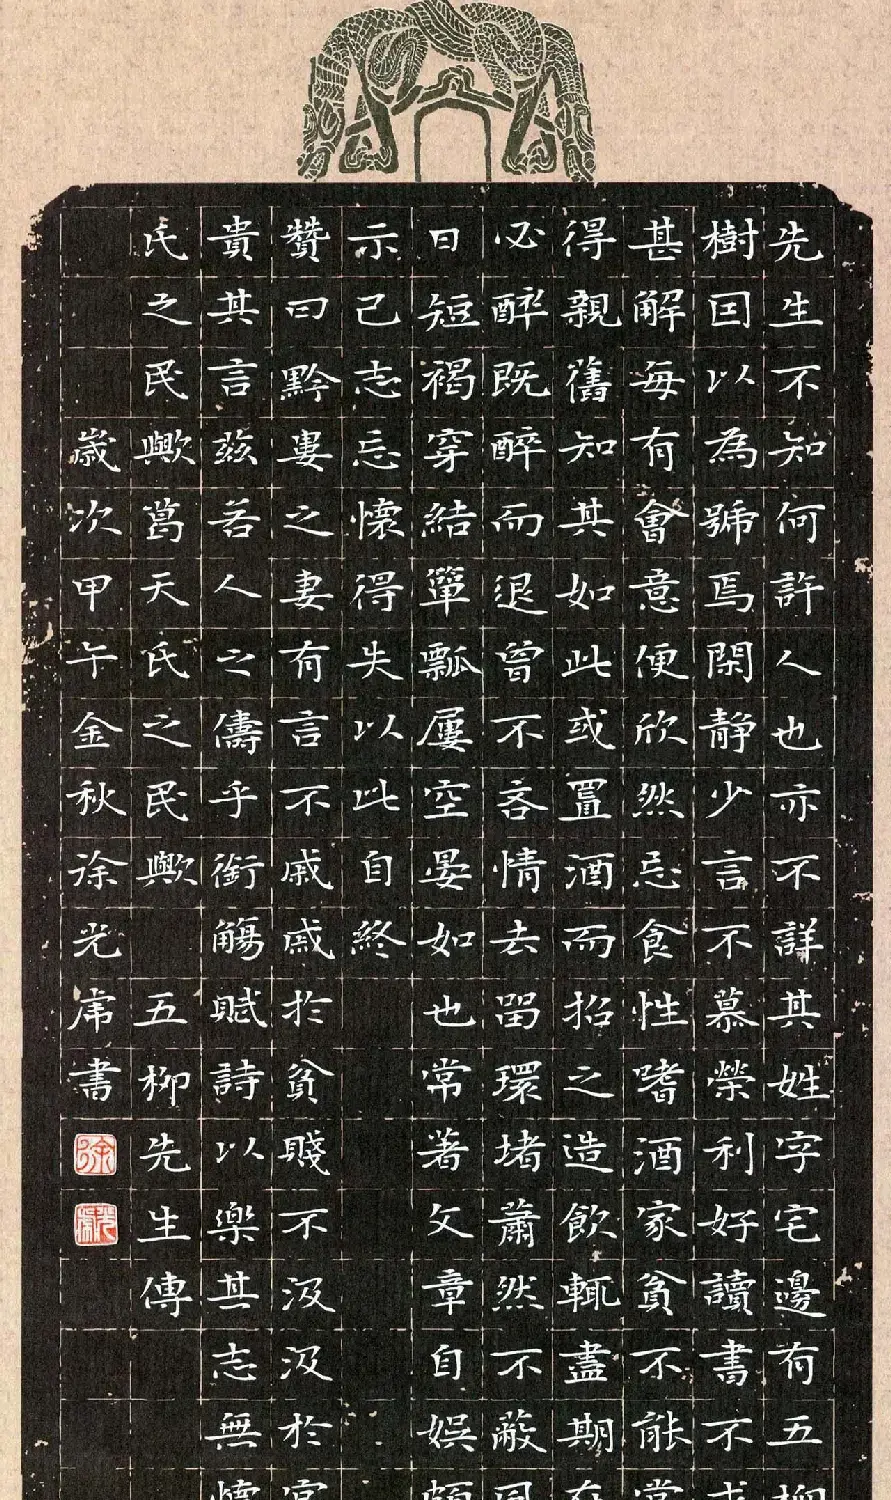 先生不知何許人也亦不詳其姓字宅邊有五柳
樹囙以為號焉閑静少言不慕榮利好讀書不求
甚解每有會意便欣然忘食性嗜酒家貧不能常
得親舊知其如此或置酒而招之造飲輒盡期在
必醉既醉而退曾不吝情去留環堵蕭然不蔽風
日短褐穿結簞瓢屢空晏如也常著文章自娛頗
示己志忘懷得失以此自終
贊曰黔婁之妻有言不戚戚於貧賤不汲汲於富
貴其言茲若人之儔乎銜觴賦詩以樂其志無懷
氏之民歟葛天氏之民歟 五柳先生傳
歲次甲午金秋徐光書
徐